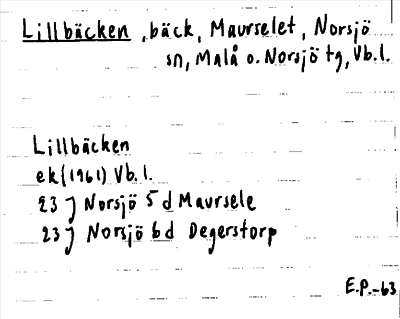 Lillbäcken, bäck, Maurselet, Norsjö
sn, Malå o. Norsjö tg, Vb.l.
Lillbäcken
ek (1961) Vb.l.
23 J Norsjö 5 d Maursele
23 J Norsjö 6 d Degerstorp
E.P.-63